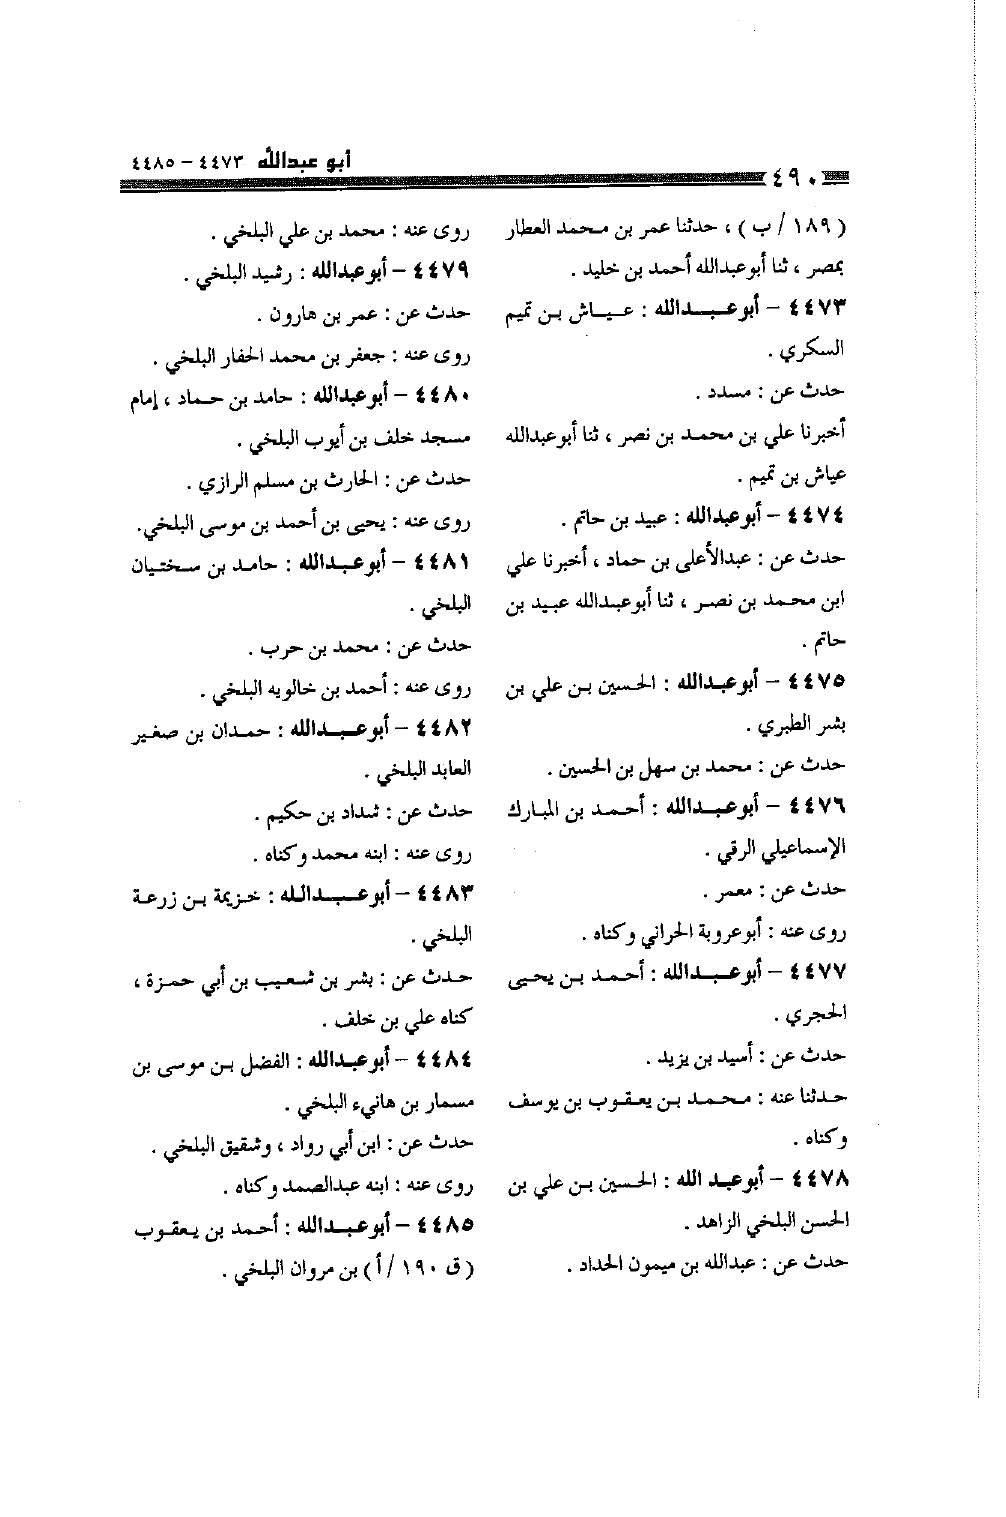 أبو عبدالله ٤٤٧٣ – ٤٤٨٥
٤٩٠
( ١٨٩ / ب ) ، حدثنا عمر بن محمد العطار
بمصر ، ثنا أبوعبدالله أحمد بن خليد .
٤٤٧٣ – أبوعبدالله : عياش بن تميم
السكري .
حدث عن : مسدد .
أخبرنا علي بن محمد بن نصر ، ثنا أبوعبدالله
عياش بن تميم .
٤٤٧٤ – أبوعبدالله : عبيد بن حاتم .
حدث عن : عبدالأعلى بن حماد ، أخبرنا علي
ابن محمد بن نصر ، ثنا أبوعبدالله عبيد بن
حاتم .
٤٤٧٥ – أبوعبدالله : الحسين بن علي بن
بشر الطبري .
حدث عن : محمد بن سهل بن الحسين .
٤٤٧٦ – أبوعبدالله : أحمد بن المبارك
الإسماعيلي الرقي .
حدث عن : معمر .
روى عنه : أبوعروبة الحراني وكناه .
٤٤٧٧ – أبوعبدالله : أحمد بن يحيى
الحجري .
حدث عن : أسيد بن يزيد .
حدثنا عنه : محمد بن يعقوب بن يوسف
وكناه .
٤٤٧٨ – أبوعبد الله : الحسين بن علي بن
الحسن البلخي الزاهد .
حدث عن : عبدالله بن ميمون الحداد .
روى عنه : محمد بن علي البلخي .
٤٤٧٩ – أبوعبدالله : رشيد البلخي .
حدث عن : عمر بن هارون .
روى عنه : جعفر بن محمد الحفار البلخي .
٤٤٨٠ – أبوعبدالله : حامد بن حماد ، إمام
مسجد خلف بن أيوب البلخي .
حدث عن : الحارث بن مسلم الرازي .
روى عنه : يحيى بن أحمد بن موسى البلخي.
٤٤٨١ – أبوعبدالله : حامد بن سختيان
البلخي .
حدث عن : محمد بن حرب .
روى عنه : أحمد بن خالويه البلخي .
٤٤٨٢ – أبوعبدالله : حمدان بن صغير
العابد البلخي .
حدث عن : شداد بن حكيم .
روى عنه : ابنه محمد وكناه .
٤٤٨٣ – أبوعبدالله : خزيمة بن زرعة
البلخي .
حدث عن : بشر بن شعيب بن أبي حمزة ،
كناه علي بن خلف .
٤٤٨٤ – أبوعبدالله : الفضل بن موسى بن
مسمار بن هانيء البلخي .
حدث عن : ابن أبي رواد ، وشقيق البلخي .
روى عنه : ابنه عبدالصمد وكناه .
٤٤٨٥ – أبوعبدالله : أحمد بن يعقوب
( ق ١٩٠ / أ ) بن مروان البلخي .